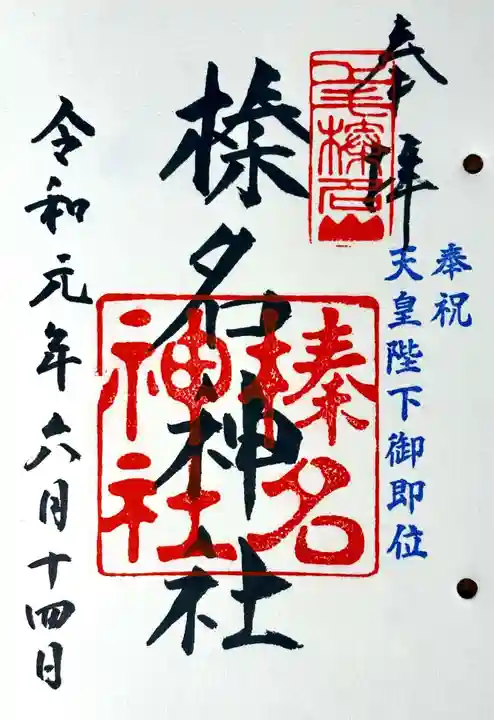 奉拝
奉祝
天皇陛下御即位
榛名神社
榛名
神社
令和元年六月十四日